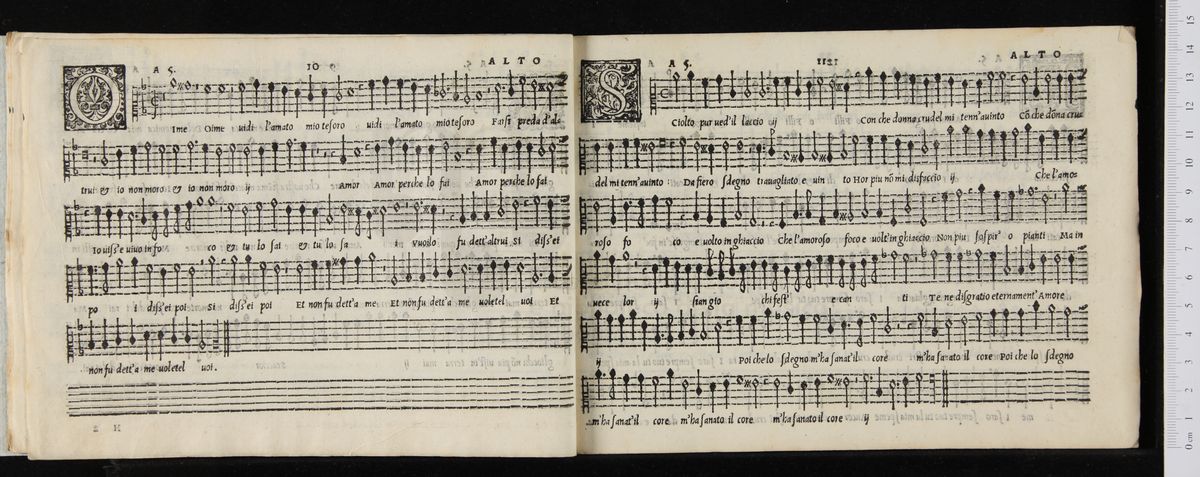 A 5. 10 ALTO
O Ime Oime uidi l'amato mio tesoro uidi l'amato mio tesoro Farsi preda d'al-
trui & io non moro & io non moro ij Amor Amor perche lo fai Amor perche lo fai
Io uiss'e uiuo in fo co & tu lo fai & tu lo fa fu dett'altrui SI diss'ei
po i diss'ei poi Si diss'ei poi Et non fu dett'a me Et non fu dett'a me uoletel uoi Et
non fu dett'a me uoletel uoi.
A 5. ALTO
S Ciolto pur ued'il laccio ij Con che donna crudel mi tenn'auinto Cō che dōna cru
del mi tenn'auinto: Da fiero sdegno trauagliato e uin to Hor piu nō mi disfaccio ij Che l'amo
roso fo co e uolto in ghiaccio Che l'amoroso foco e uolt'in ghiaccio Non piu sospir' o pianti Ma in
uece lor ij sian gio chi fest' e can ti Te ne disgratio eternament' Amore
ij Poi che lo sdegno m'ha sanat'il core m'ha sanato il core Poi che lo sdegno
m'ha sanat'il core m'ha sanato il core m'ha sanato il core ij
0 cm 1 2 3 4 5 6 7 8 9 10 11 12 13 14 15